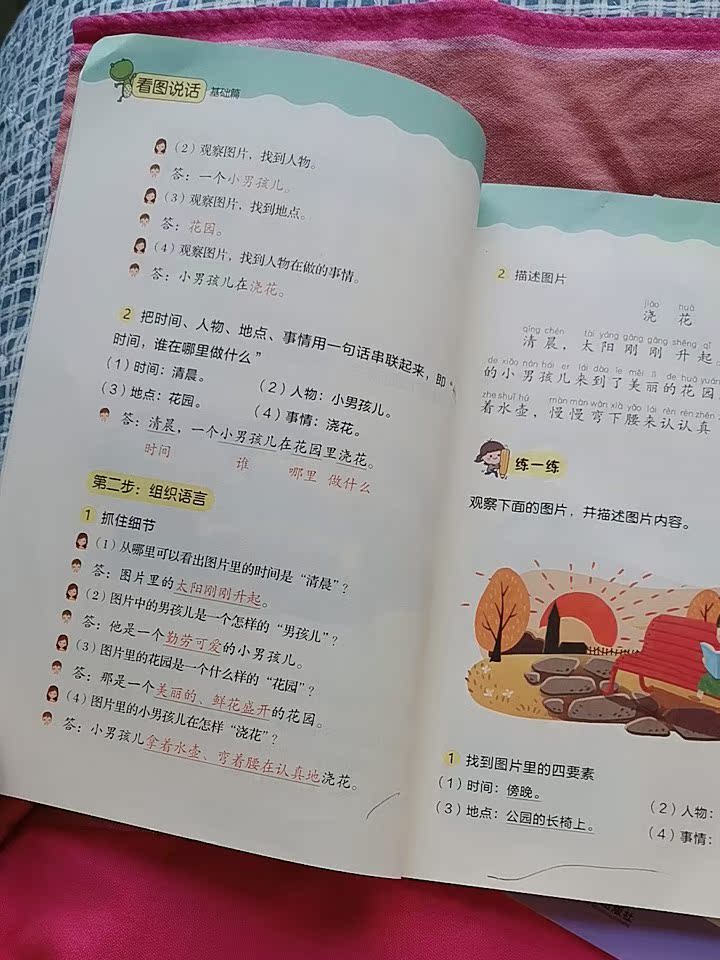 看图说话 基础篇
（2）观察图片，找到人物。
答：一个小男孩儿。
（3）观察图片，找到地点。
答：花园。
（4）观察图片，找到人物在做的事情。
答：小男孩儿在浇花。
2 把时间、人物、地点、事情用一句话串联起来，即“
时间，谁在哪里做什么”
（1）时间：清晨。
（2）人物：小男孩儿。
（3）地点：花园。
（4）事情：浇花。
答：清晨，一个小男孩儿在花园里浇花。
时间 谁 哪里 做什么
第二步：组织语言
1 抓住细节
（1）从哪里可以看出图片里的时间是“清晨”？
答：图片里的太阳刚刚升起。
（2）图片中的男孩儿是一个怎样的“男孩儿”？
答：他是一个勤劳可爱的小男孩儿。
（3）图片里的花园是一个什么样的“花园”？
答：那是一个美丽的、鲜花盛开的花园。
（4）图片里的小男孩儿在怎样“浇花”？
答：小男孩儿拿着水壶、弯着腰在认真地浇花。
2 描述图片
jiāo huā
浇 花
qīng chén tài yáng gāng gāng shēng qǐ
清晨，太阳刚刚升起
de xiǎo nán hái er lái dào le měi lì de huā yuán
的小男孩儿来到了美丽的花园
zhe shuǐ hú màn màn wān xià yāo lái rèn rèn zhēn
着水壶，慢慢弯下腰来认认真
练一练
观察下面的图片，并描述图片内容。
1 找到图片里的四要素
（1）时间：傍晚。
（2）人物：
（3）地点：公园的长椅上。
（4）事情：
出版社